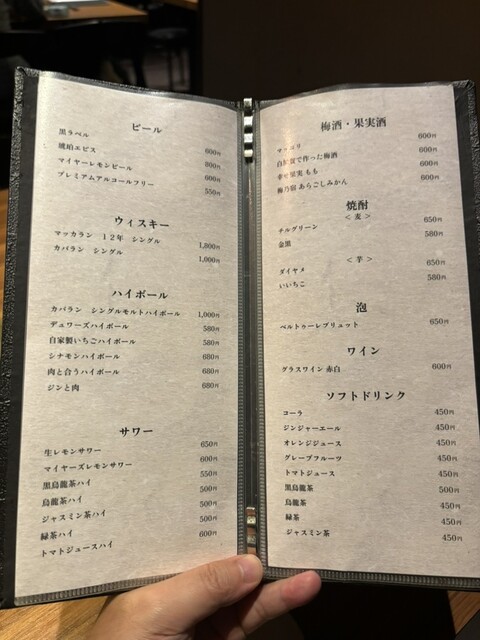 ビール
黒ラベル 600円
琥珀エビス 800円
マイヤーレモンビール 600円
プレミアムアルコールフリー 550円
ウィスキー
マッカラン 12年 シングル 1,800円
カバラン シングル 1,000円
ハイボール
カバラン シングルモルトハイボール 1,000円
デュワーズハイボール 580円
自家製いちごハイボール 580円
シナモンハイボール 680円
肉と合うハイボール 680円
ジンと肉 680円
サワー
生レモンサワー 650円
マイヤーズレモンサワー 600円
黒烏龍茶ハイ 550円
烏龍茶ハイ 500円
ジャスミン茶ハイ 500円
緑茶ハイ 500円
トマトジュースハイ 600円
梅酒・果実酒
600円
で作った梅酒 600円
果実 もも 600円
梅乃宿 あらごしみかん 600円
焼酎
<麦>
チルグリーン 650円
金黒 580円
<芋>
ダイヤメ 650円
いいちこ 580円
泡
ベルトゥーレブリュット 650円
ワイン
グラスワイン 赤白 600円
ソフトドリンク
コーラ 450円
ジンジャーエール 450円
オレンジジュース 450円
グレープフルーツ 450円
トマトジュース 450円
黒烏龍茶 500円
烏龍茶 450円
緑茶 450円
ジャスミン茶 450円